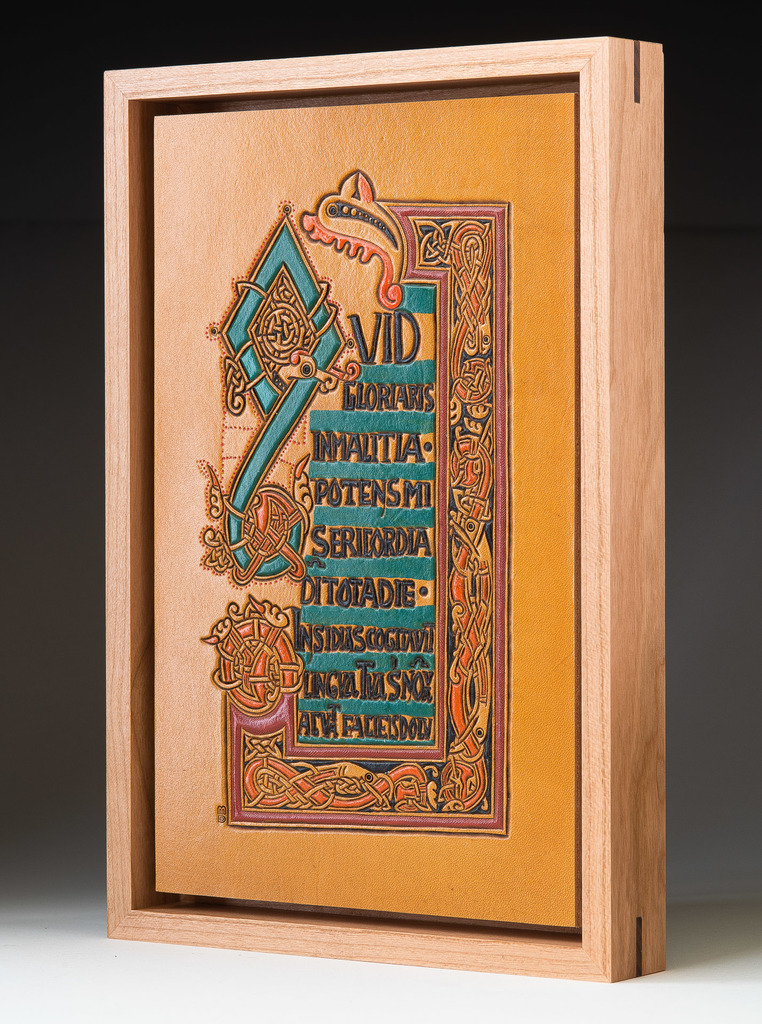 QVID
GLORIARIS
INMALITIA·
POTENSMI
SERICORDIA
D̄ITOTADIE·
INSIDIASCOGITAVIT
LINGVA TVA